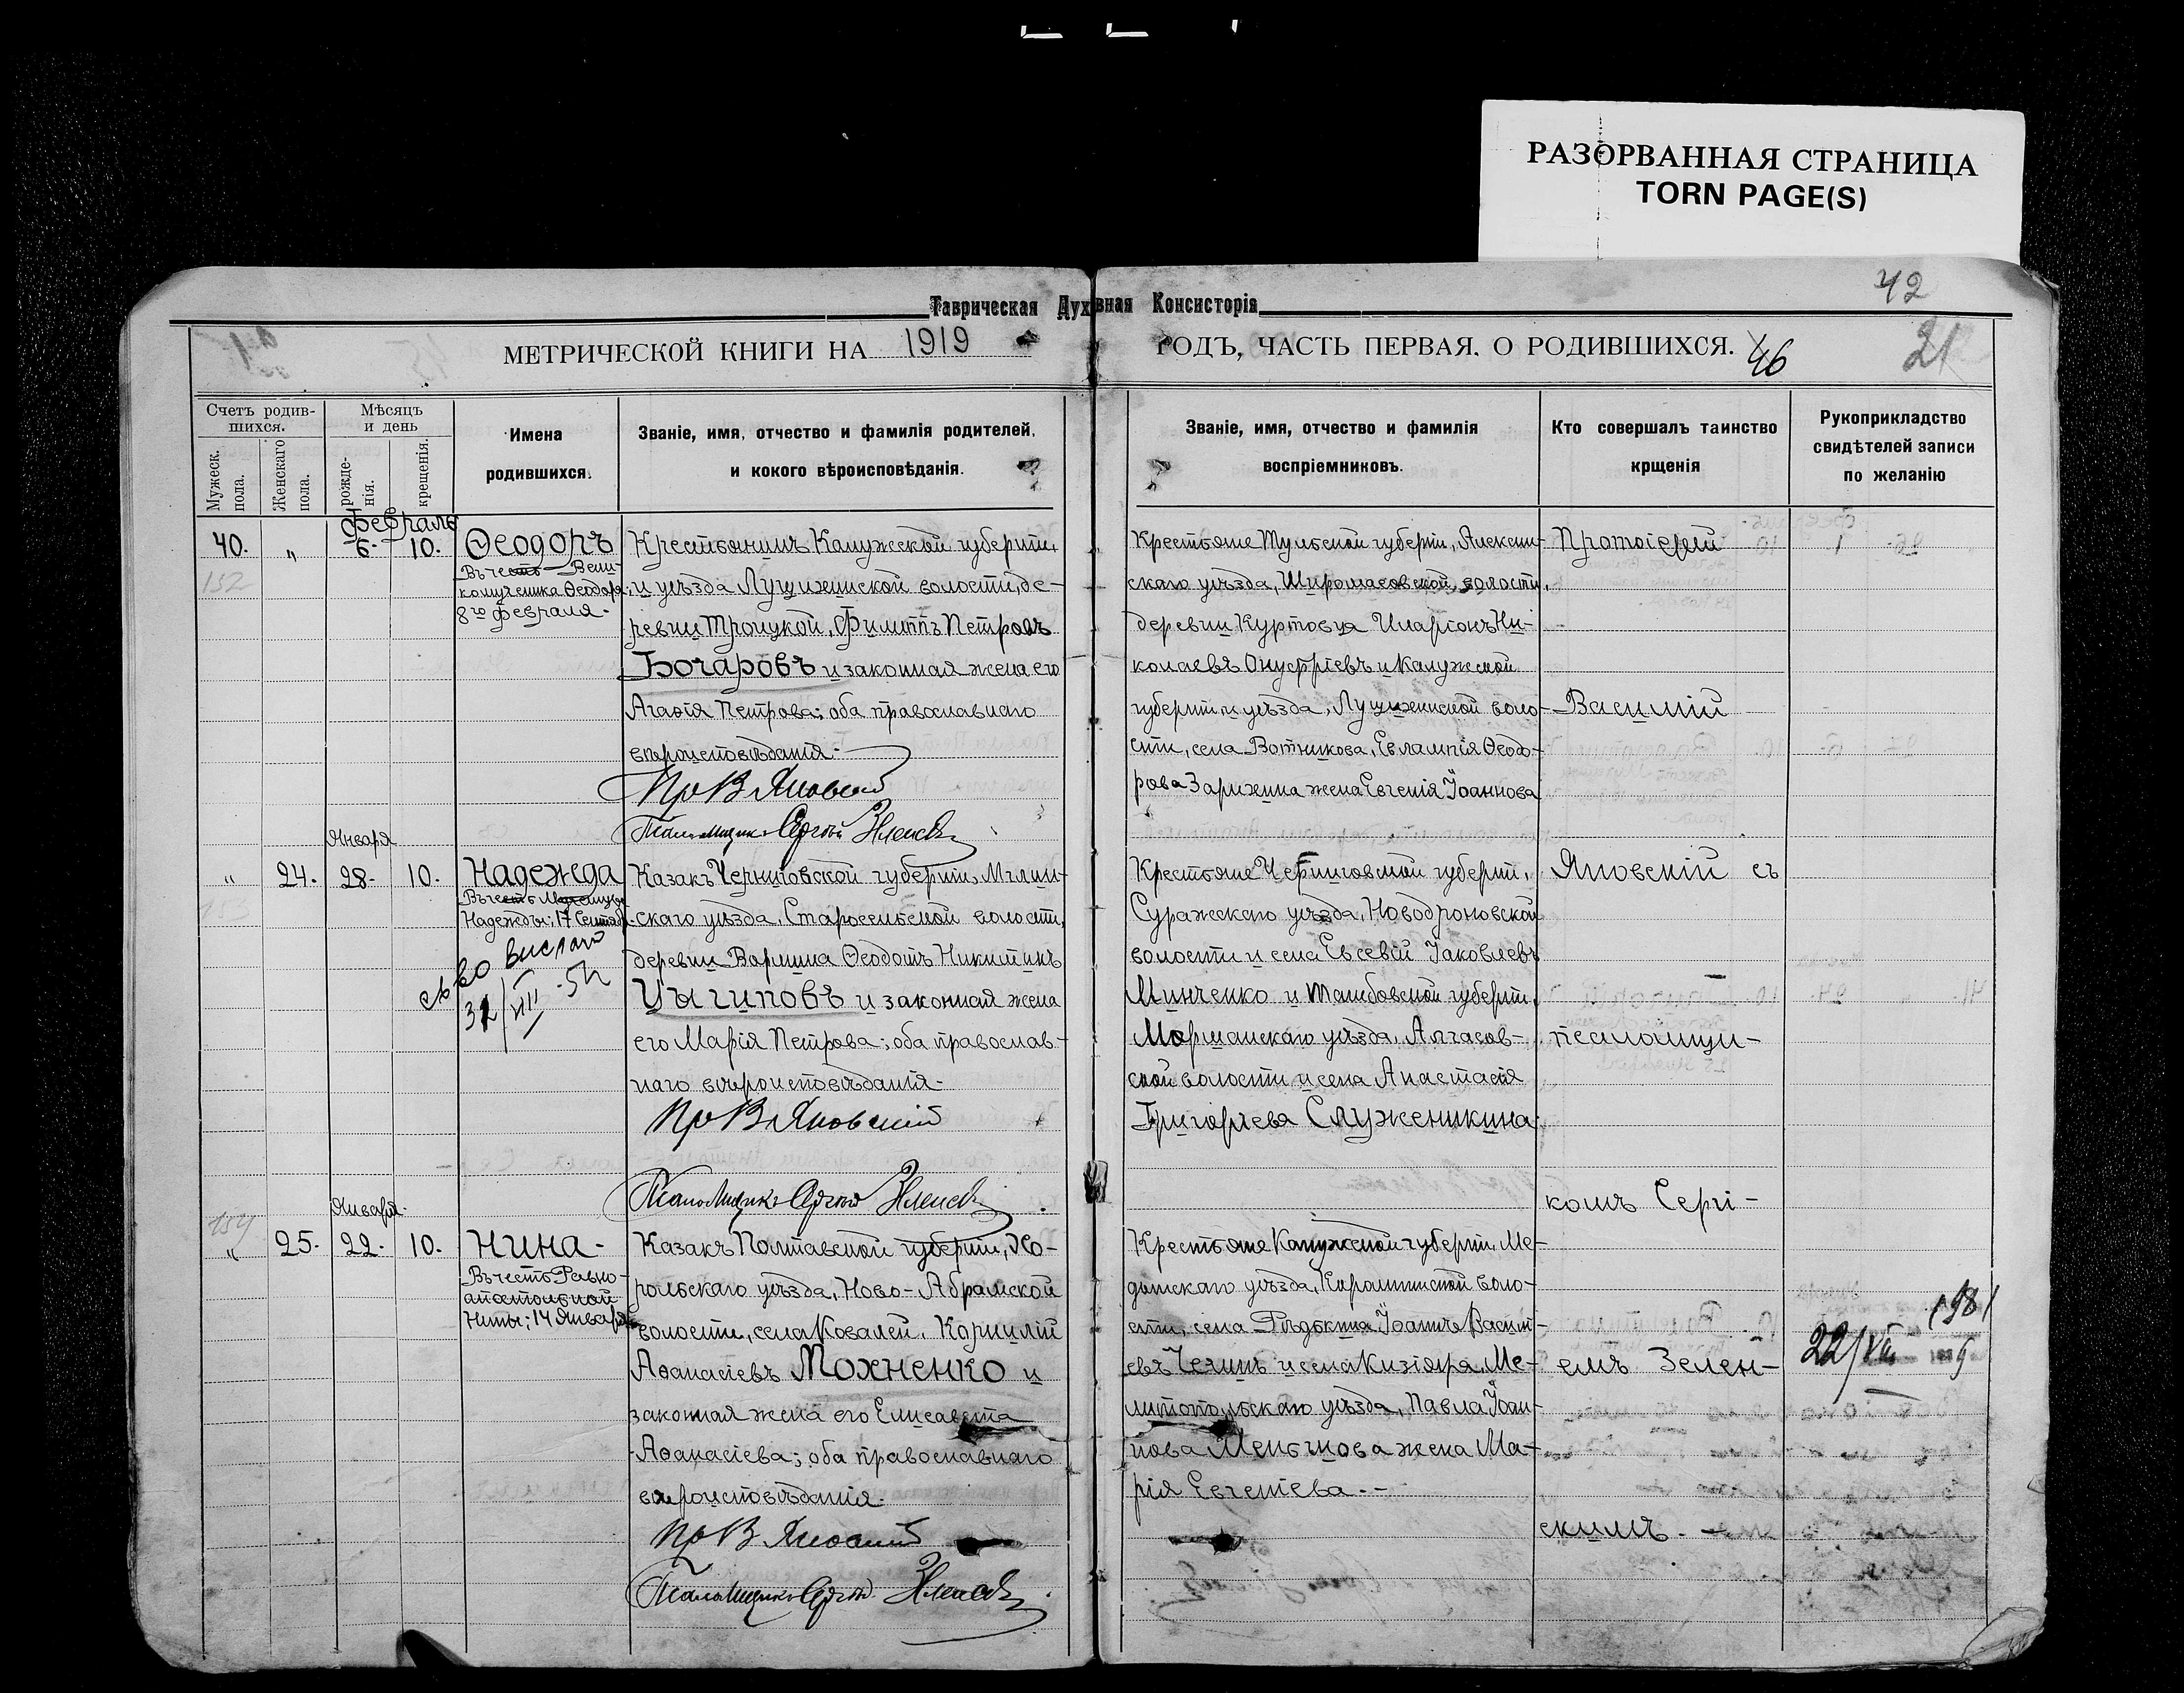 РАЗОРВАННАЯ СТРАНИЦА
TORN PAGE(S)
42
Таврическая Духовная Консисторія
МЕТРИЧЕСКОЙ КНИГИ НА 1919
ГОДЪ, ЧАСТЬ ПЕРВАЯ. О РОДИВШИХСЯ.
46
21
Счетъ родив-
шихся.
Мужеск. пола.
Женскаго пола.
Мѣсяцъ
и день
рожде-
нія.
крещенія.
Имена
родившихся.
Званіе, имя, отчество и фамилія родителей,
и кокого вѣроисповѣданія.
Званіе, имя, отчество и фамилія
воспріемниковъ.
Кто совершалъ таинство
крщенія
Рукоприкладство
свидѣтелей записи
по желанію
Февраль
40. " 6. 10.
152
Ѳеодоръ
Въ честь Вели-
комученика Ѳеодора
8го февраля.
Крестьянинъ Калужской губерніи,
и уѣзда Лущихинской волости, де-
ревни Троицкой, Филиппъ Петровъ
Бочаровъ и законная жена его
Агаѳія Петрова; оба православнаго
вѣроисповѣданія.
Пр В Яновскій
Псаломщикъ Сергій
Крестьяне Тульской губерніи, Алексин-
скаго уѣзда, Широносовской волости,
деревни Куртовца Иларіонъ Ни-
колаевъ Онуфріевъ и Калужской
губерніи, и уѣзда, Лущихинской воло-
сти, села Вотникова, Евлампія Ѳеодо-
рова Зарихина жена Евгенія Іоаннова
Протоіерей
Василій
Января
" 24. 28. 10.
Надежда
Въ честь Мученицы
Надежды; 17 Сентяб.
св-во выслано
31/VII-52
Казакъ Черниговской губерніи, Мглин-
скаго уѣзда, Старосельской волости,
деревни Вормина Ѳеодотъ Никитинъ
Цыгиповъ и законная жена
его Марія Петрова; оба православ-
наго вѣроисповѣданія.
Пр В Яновскій
Псаломщикъ Сергій
Крестьяне Черниговской губерніи,
Суражскаго уѣзда, Новодроновской
волости и села Евсевій Іаковлевъ
Минченко и Тамбовской губерніи,
Моршанскаго уѣзда, Алгасов-
ской волости и села Анастасія
Григоріева Служеникина
Яновскій съ
псаломщи-
комъ Сергі-
Января
154
" 25. 22. 10.
Нина
Въ честь Равно-
апостольной
Нины; 14 Января
Казакъ Полтавской губерніи, Хо-
рольскаго уѣзда, Ново-Абрамской
волости, села Ковалей, Корнилій
Аѳанасіевъ Мохненко и
законная жена его Елисавета
Аѳанасіева; оба православнаго
вѣроисповѣданія.
Пр В Яновскій
Псаломщикъ Сергій
Крестьяне Калужской губерніи, Ме-
дынскаго уѣзда, воло-
сти, села Рѣдькина Іоаннъ Васили-
евъ и села Кизіяра, Ме-
литопольскаго уѣзда, Павла Іоан-
нова Меньчкова жена Ма-
рія Евгеніева.
емъ Зелен-
скимъ.
22/VIII 1981